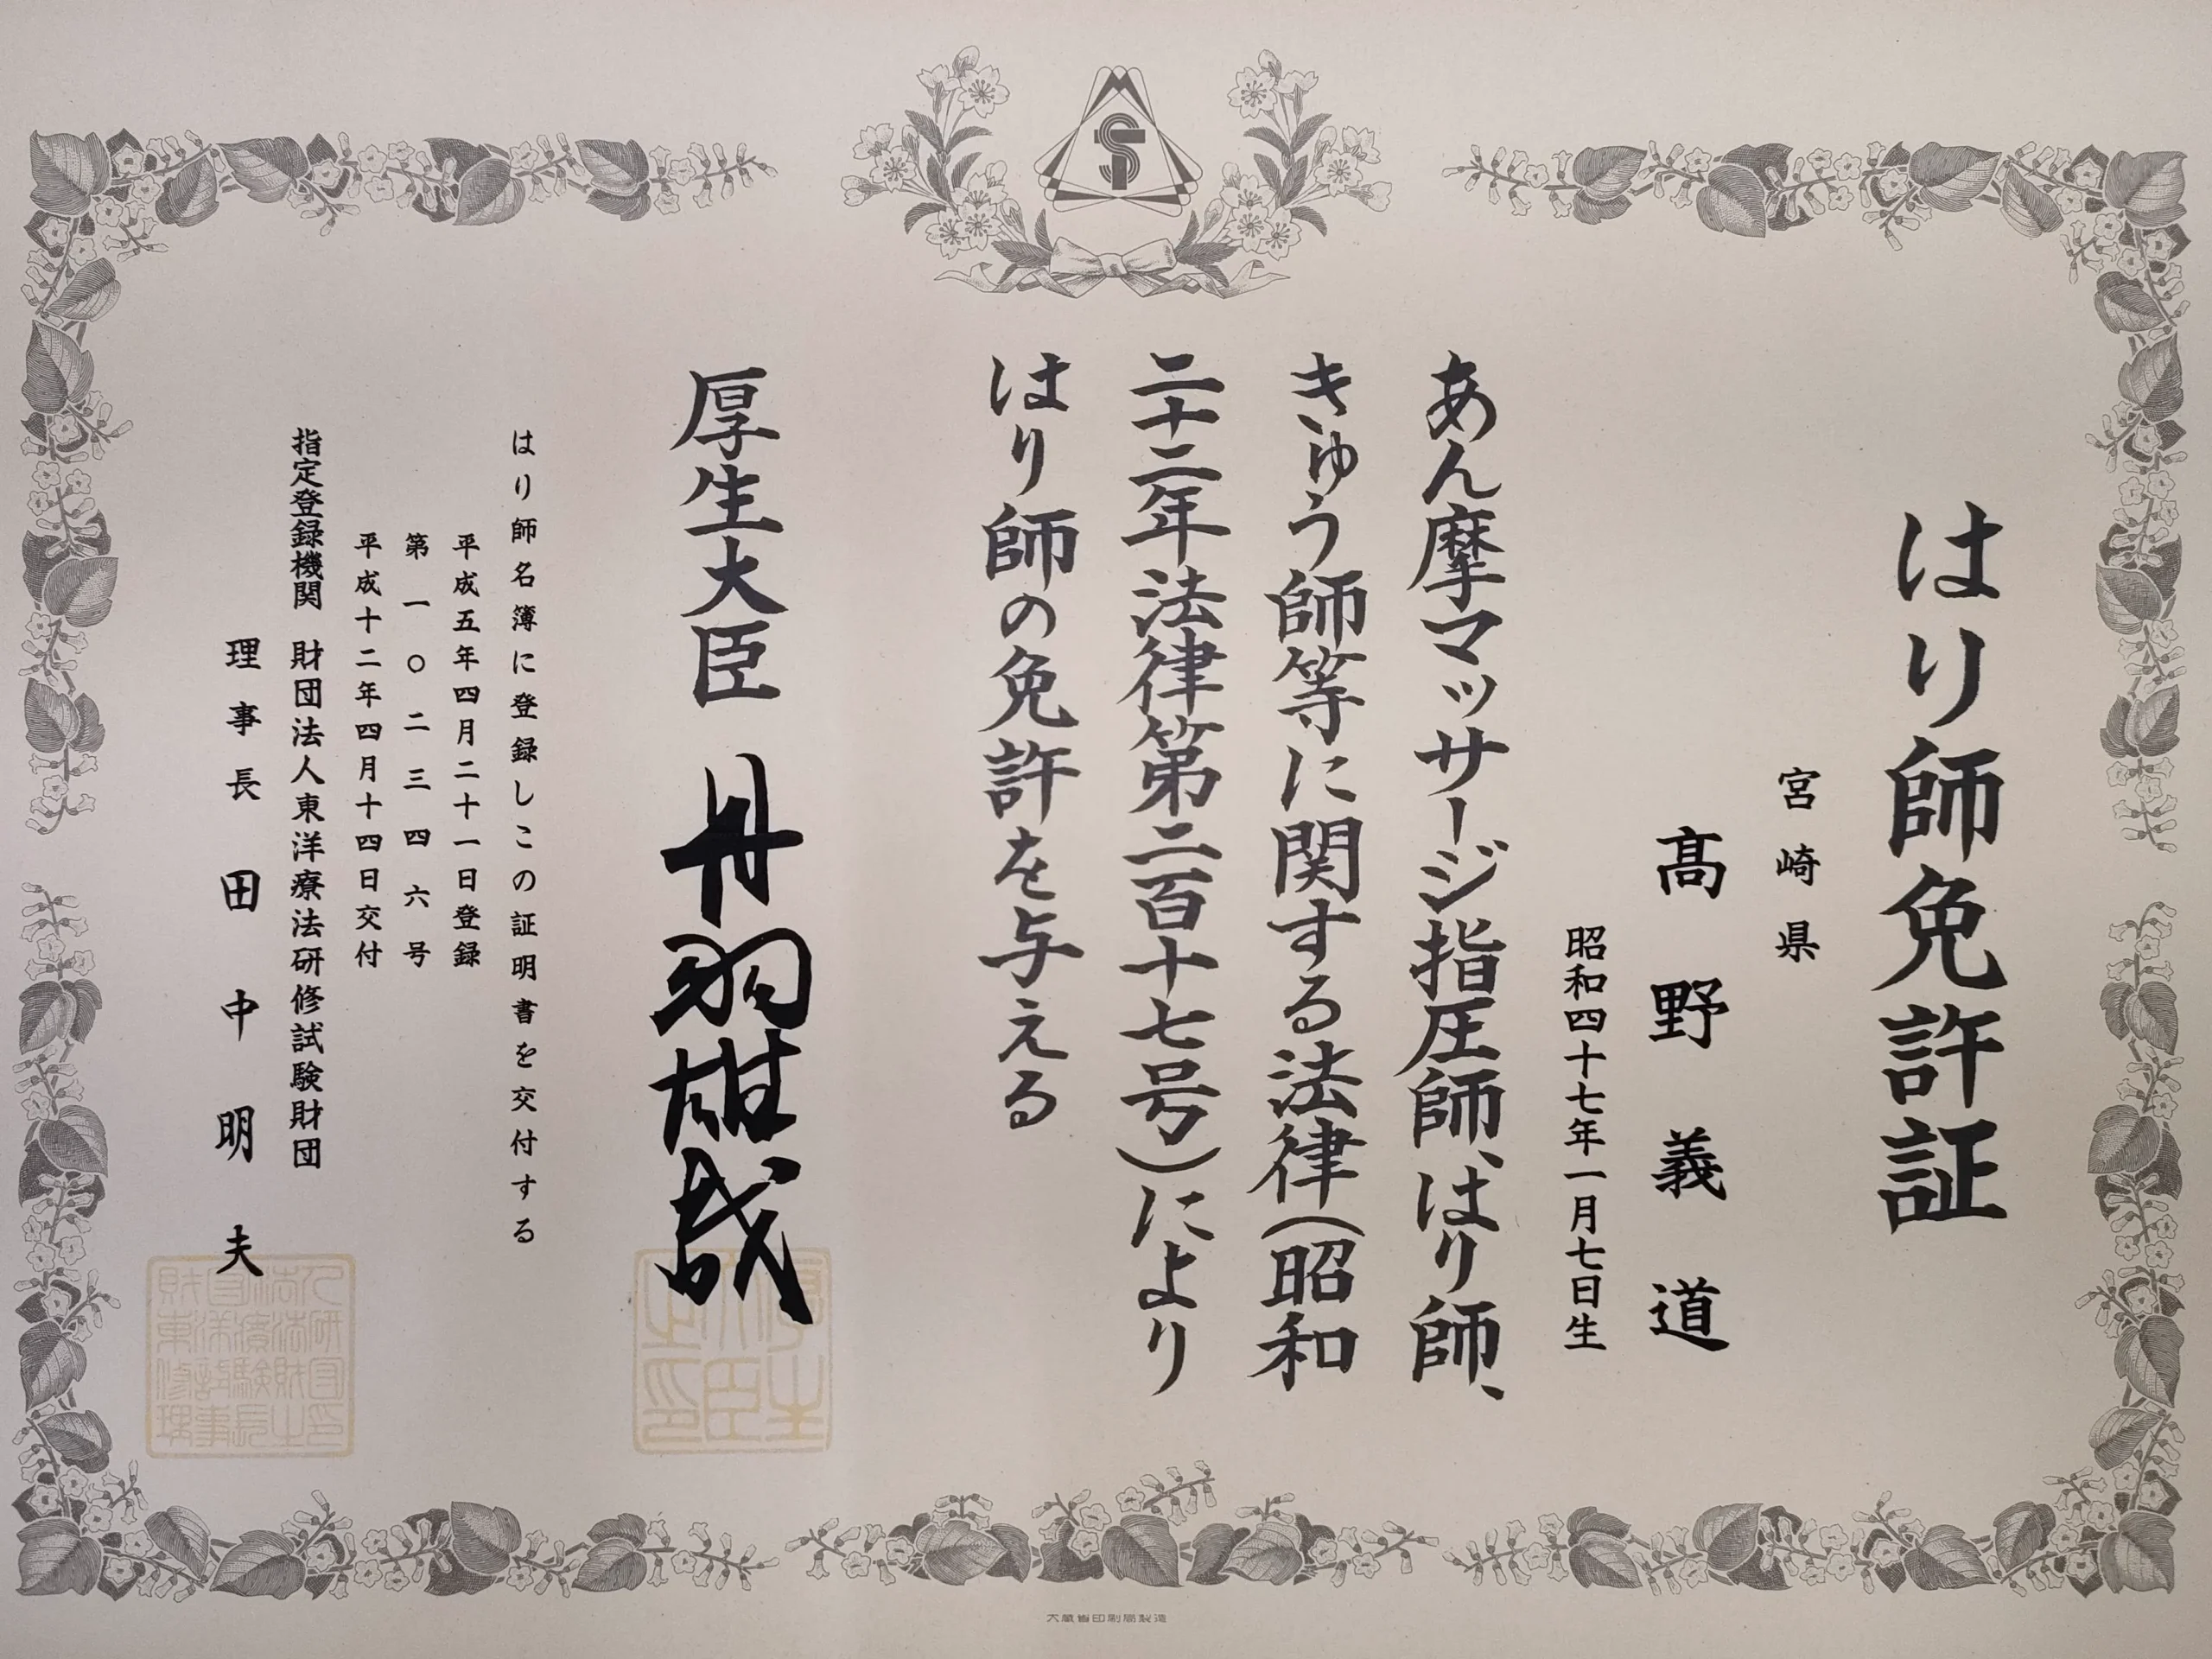 はり師免許証
宮崎県
髙野義道
昭和四十七年一月七日生
あん摩マッサージ指圧師、はり師、
きゅう師等に関する法律(昭和
二十二年法律第二百十七号)により
はり師の免許を与える
厚生大臣 丹羽雄哉
はり師名簿に登録しこの証明書を交付する
平成五年四月二十一日登録
第一〇二三四六号
平成十二年四月十四日交付
指定登録機関 財団法人東洋療法研修試験財団
理事長 田中明夫
大蔵省印刷局製造